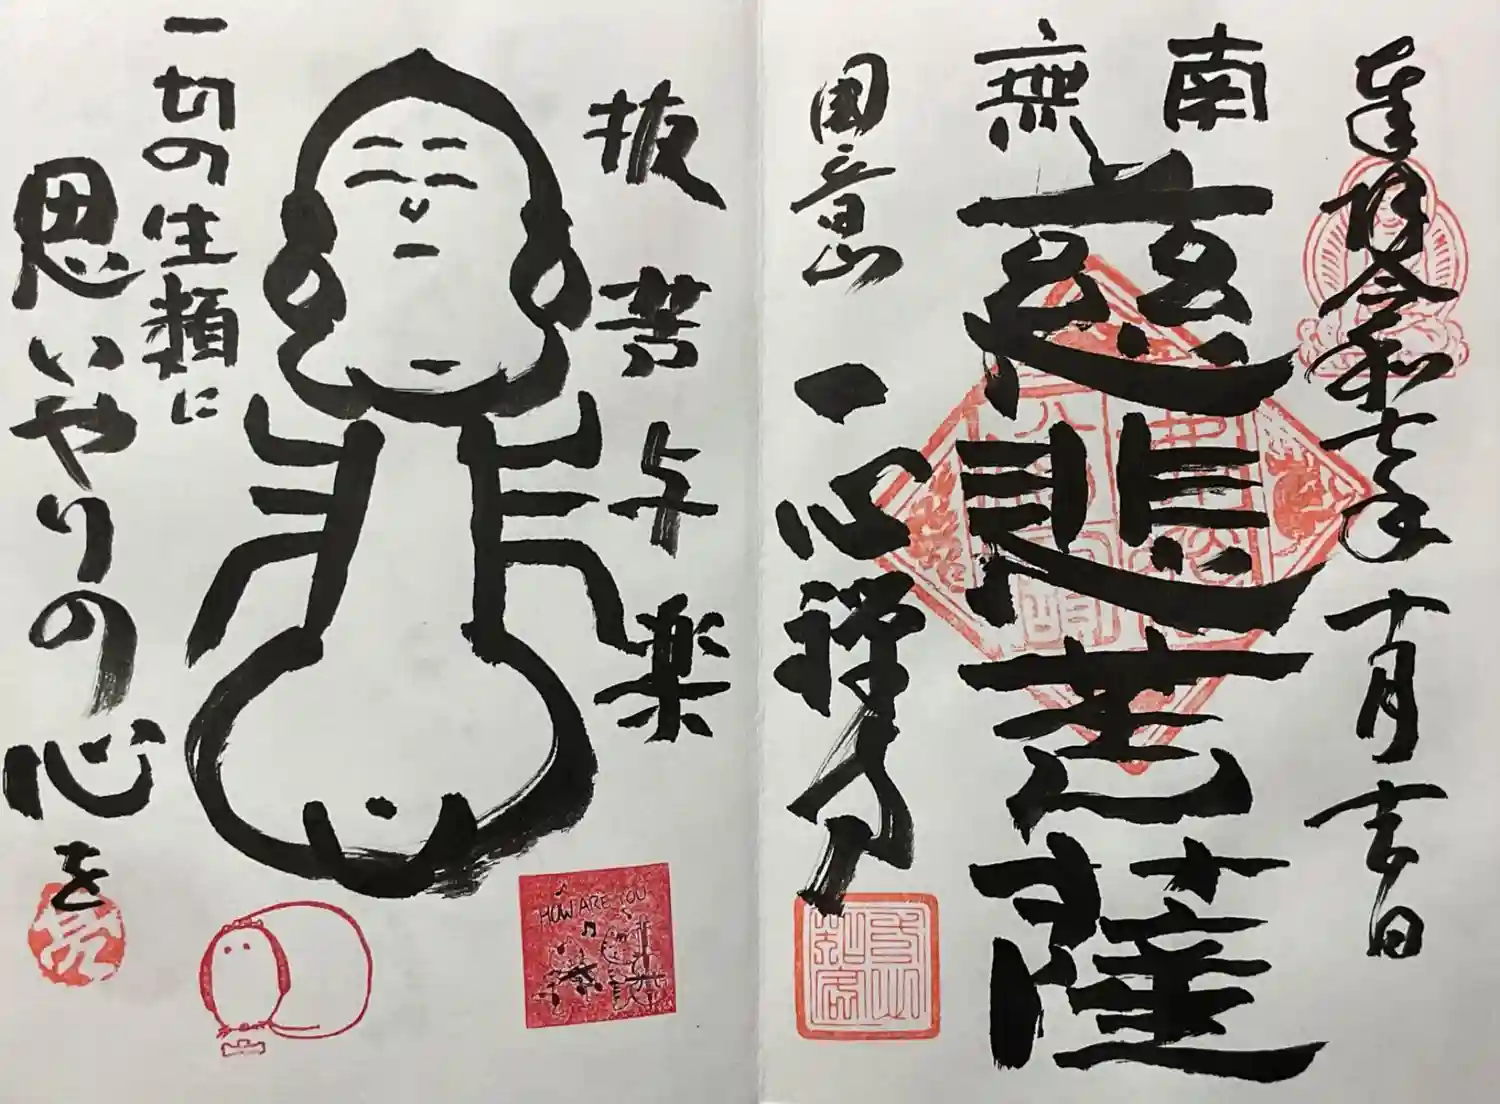 奉拝令和七年十月吉日
南無
慈悲菩薩
音山
一心禅
抜苦与楽
一切の生類に
思いやりの心を
HOW ARE YOU